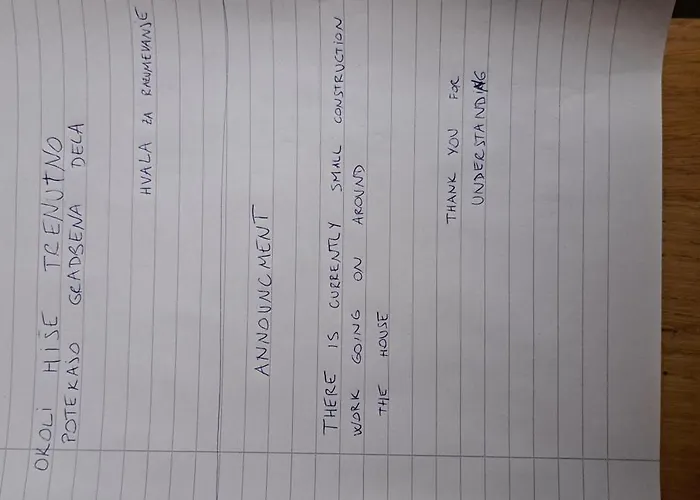 OKOLI HIŠE TRENUTNO
POTEKAJO GRADBENA DELA
HVALA ZA RAZUMEVANJE
ANNOUNCMENT
THERE IS CURRENTLY SMALL CONSTRUCTION
WORK GOING ON AROUND
THE HOUSE
THANK YOU FOR
UNDERSTANDING